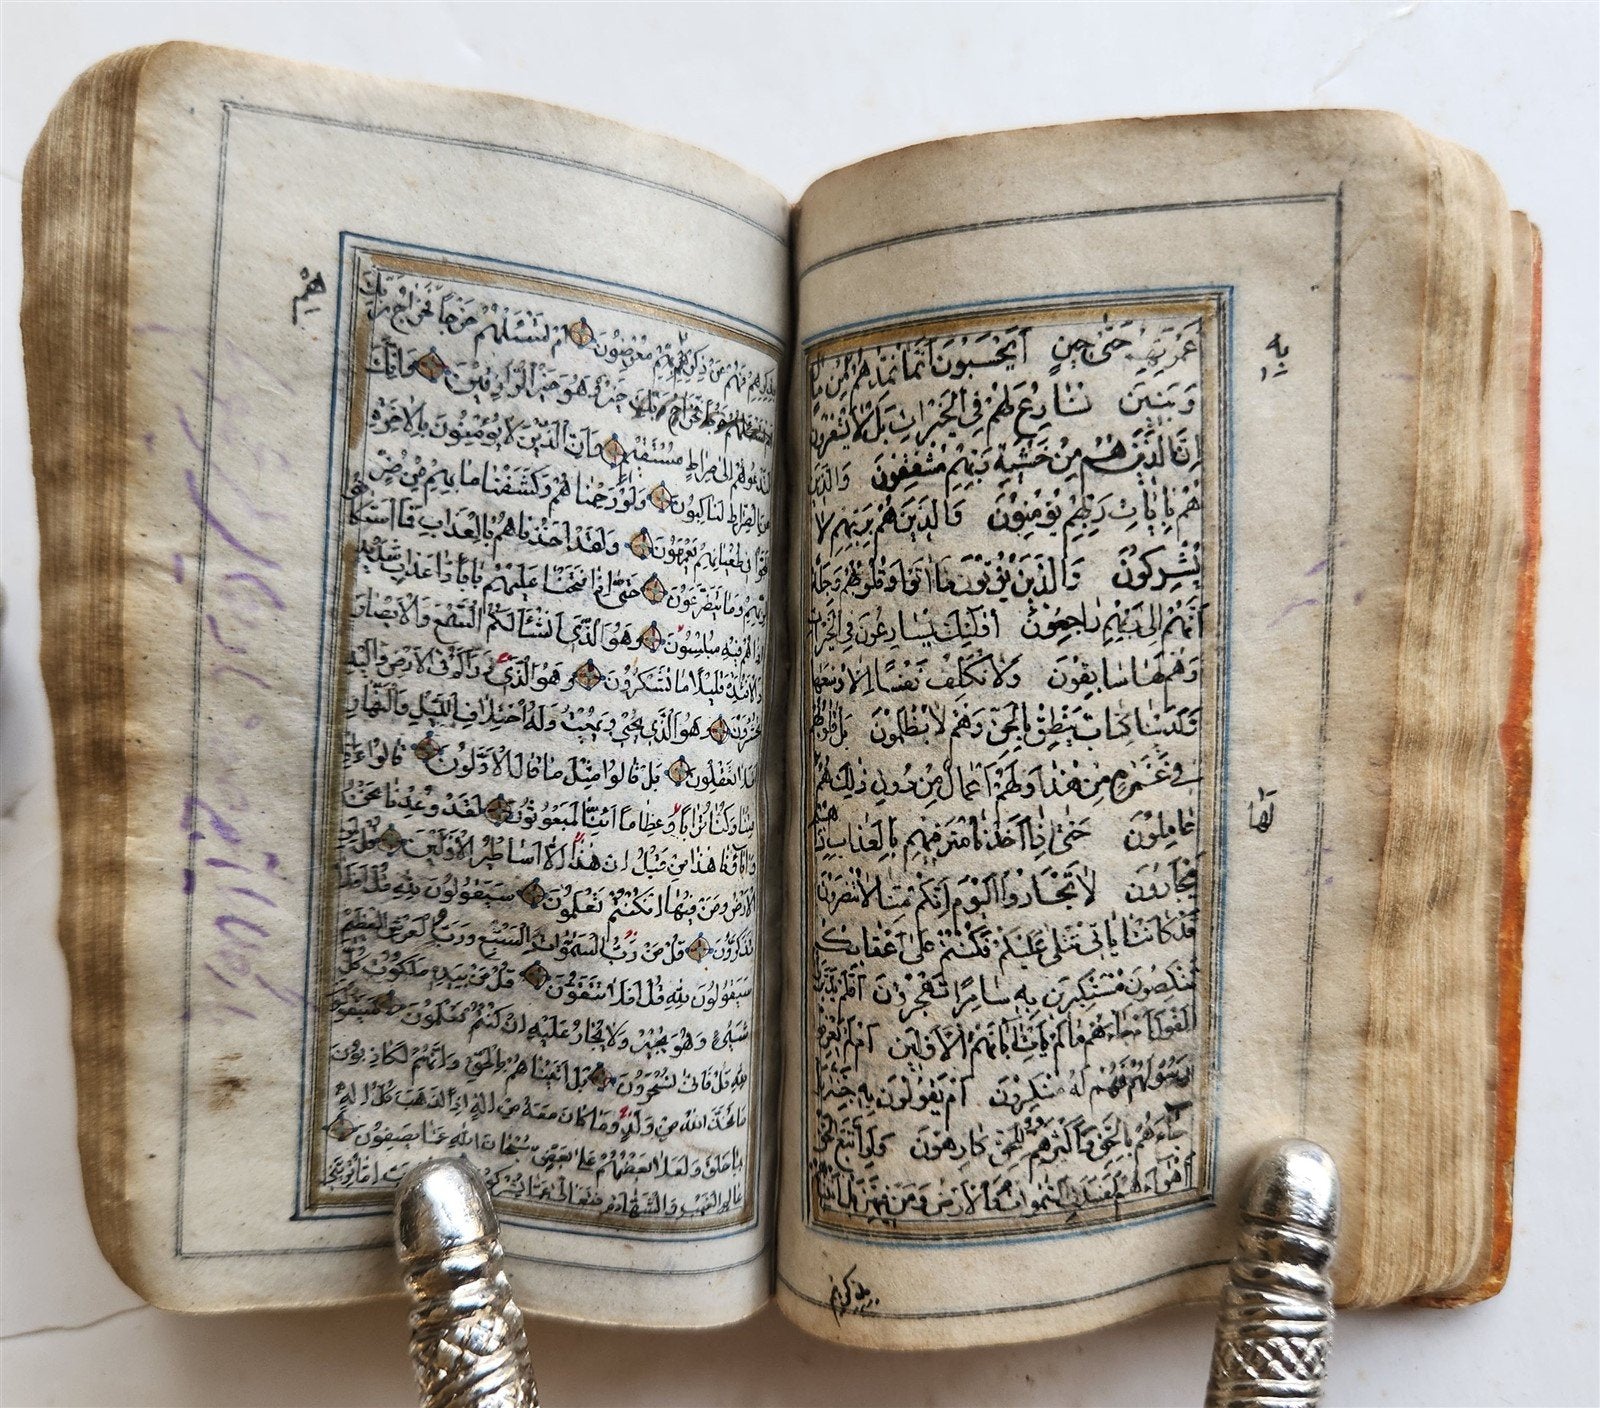 غمرتهم حتى حين ايحسبون انما نمدهم من مال
به
وبنين نسارع لهم في الخيرات بل لا يشعرون
ان الذين هم من خشية ربهم مشفقون والذين
هم بايات ربهم يؤمنون والذين هم بربهم لا
يشركون والذين يؤتون ما اتوا وقلوبهم وجلة
انهم الى ربهم راجعون اولئك يسارعون في الخيرات
وهم لها سابقون ولا نكلف نفسا الا وسعها
ولدينا كتاب ينطق بالحق وهم لا يظلمون بل قلوبهم
في غمرة من هذا ولهم اعمال من دون ذلك هم
لها
عاملون حتى اذا اخذنا مترفيهم بالعذاب اذا هم
يجارون لا تجاروا اليوم انكم منا لا تنصرون
قد كانت اياتي تتلى عليكم فكنتم على اعقابكم
تنكصون مستكبرين به سامرا تهجرون افلم يدبروا
القول ام جاءهم ما لم يات اباءهم الاولين ام لم يعرفوا
رسولهم فهم له منكرون ام يقولون به جنة بل
جاءهم بالحق واكثرهم للحق كارهون ولو اتبع الحق
اهواءهم لفسدت السموات والارض ومن فيهن بل اتيناهم
بذكرهم
بذكرهم فهم عن ذكرهم معرضون ام تسئلهم خرجا فخراج ربك
خير وهو خير الرازقين وانك
لتدعوهم الى صراط مستقيم وان الذين لا يؤمنون بالاخرة
عن الصراط لناكبون ولو رحمناهم وكشفنا ما بهم من ضر
للجوا في طغيانهم يعمهون ولقد اخذناهم بالعذاب فما استكانوا
لربهم وما يتضرعون حتى اذا فتحنا عليهم بابا ذا عذاب شديد
اذا هم فيه مبلسون وهو الذي انشا لكم السمع والابصار
والافئدة قليلا ما تشكرون وهو الذي ذراكم في الارض واليه
تحشرون وهو الذي يحيي ويميت وله اختلاف الليل والنهار
افلا تعقلون بل قالوا مثل ما قال الاولون قالوا ءاذا
متنا وكنا ترابا وعظاما ائنا لمبعوثون لقد وعدنا نحن
واباؤنا هذا من قبل ان هذا الا اساطير الاولين قل لمن
الارض ومن فيها ان كنتم تعلمون سيقولون لله قل افلا
تذكرون قل من رب السموات السبع ورب العرش العظيم
سيقولون لله قل افلا تتقون قل من بيده ملكوت كل
شيء وهو يجير ولا يجار عليه ان كنتم تعلمون سيقولون
لله قل فانى تسحرون بل اتيناهم بالحق وانهم لكاذبون
ما اتخذ الله من ولد وما كان معه من اله اذا لذهب كل اله
بما خلق ولعلا بعضهم على بعض سبحان الله عما يصفون
عالم الغيب والشهادة فتعالى عما يشركون